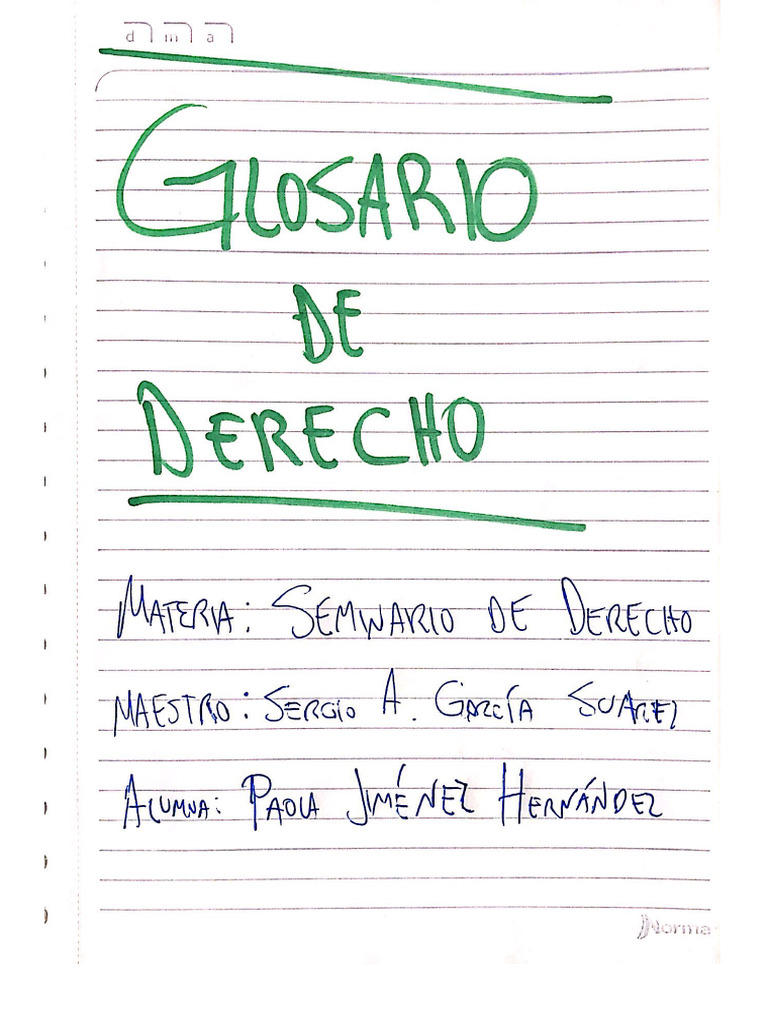 d m a
GLOSARIO
DE
DERECHO
MATERIA: SEMINARIO DE DERECHO
MAESTRO: SERGIO A. GARCÍA SUAREZ
ALUMNA: PAOLA JIMÉNEZ HERNÁNDEZ
Norma